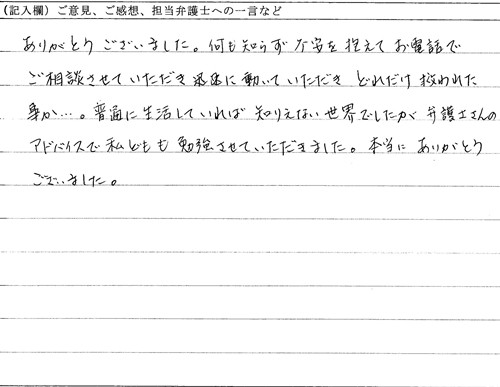 (記入欄)ご意見、ご感想、担当弁護士への一言など
ありがとうございました。何も知らず不安を抱えてお電話で
ご相談させていただき迅速に動いていただき どれだけ救われた
事か…。普通に生活していれば知りえない世界でしたが弁護士さんの
アドバイスで私どもも勉強させていただきました。本当にありがとう
ございました。